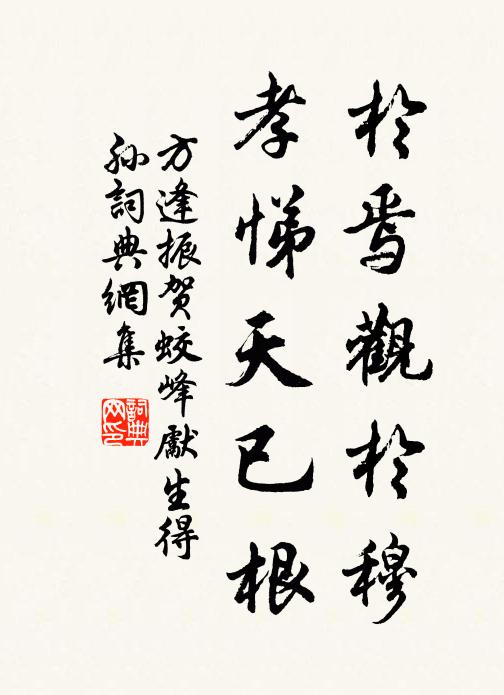 於焉觀於穆
孝悌天已根
方逢振賀蛟峰獻生得
孙詞典網集
詞典
网印